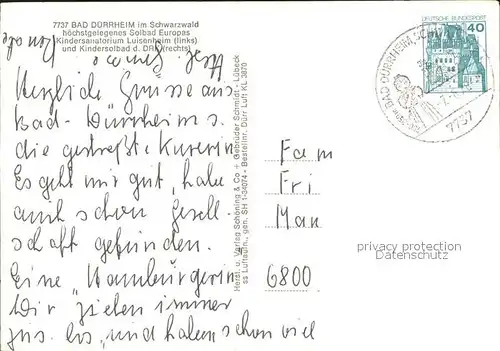 7737 BAD DÜRRHEIM im Schwarzwald
höchstgelegenes Solbad Europas
Kindersanatorium Luisenheim (links)
und Kindersolbad d. DRK (rechts)
Herzliche Grüsse aus
Bad-Dürrheim s.
die gestreßte Kurerin
Es geht mir gut, habe
auch schon Gesell-
schaft gefunden.
Eine "Hamburgerin"
Wir ziehen immer
zus. los, und haben schon viel
Herst. u. Verlag Schöning & Co + Gebrüder Schmidt · Lübeck
ss Luftaufn., gen. SH 1-34074 - Bestellnr. Dürr Luft KL 3870
DEUTSCHE BUNDESPOST
40
BAD DÜRRHEIM
7737
Fam
Fri
Man
6800
privacy protection
Datenschutz